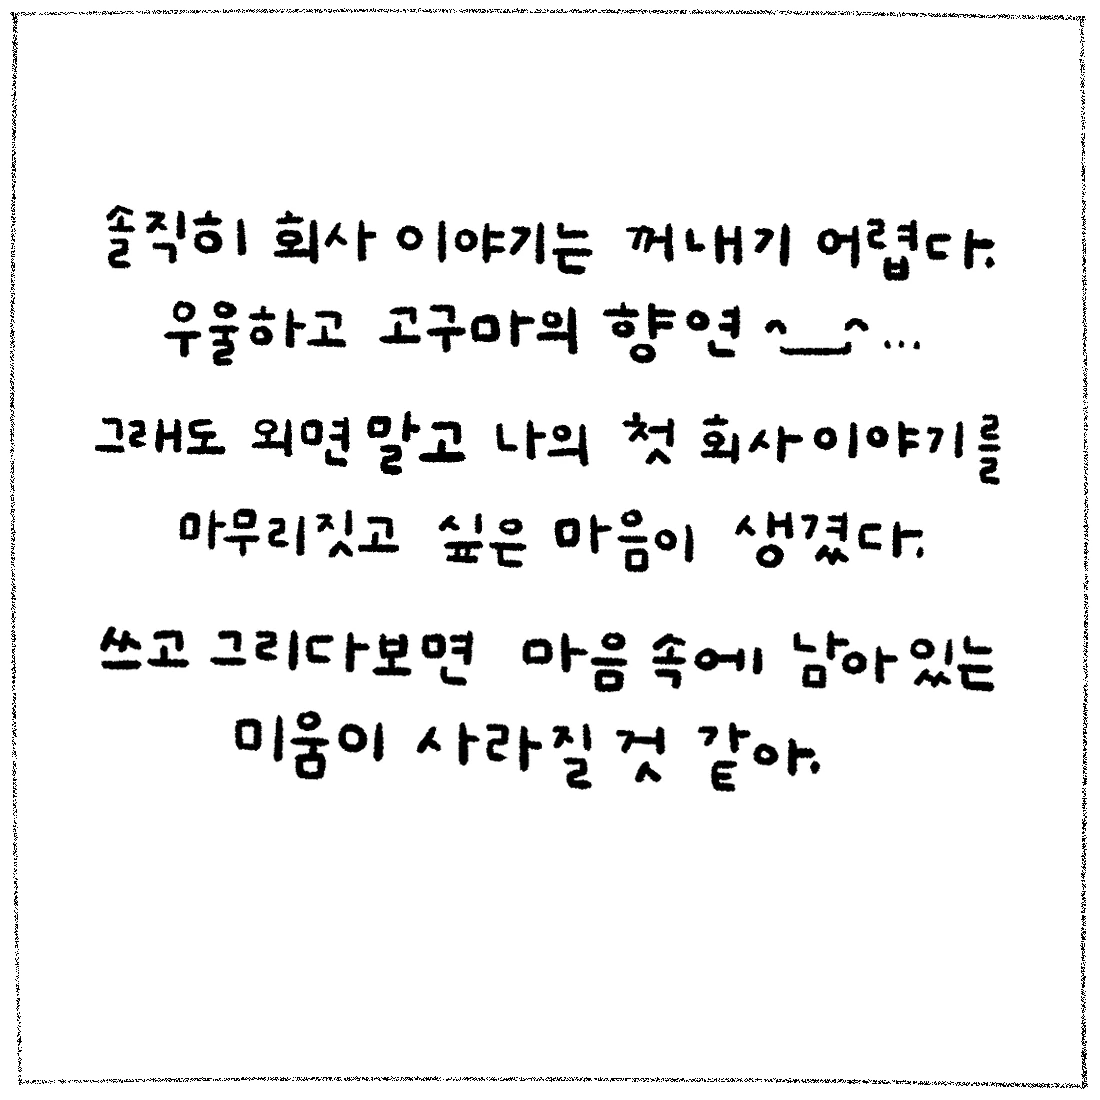 솔직히 회사 이야기는 꺼내기 어렵다.
우울하고 고구마의 향연 ^___^...
그래도 외면말고 나의 첫 회사이야기를
마무리짓고 싶은 마음이 생겼다.
쓰고 그리다보면 마음 속에 남아있는
미움이 사라질 것 같아.